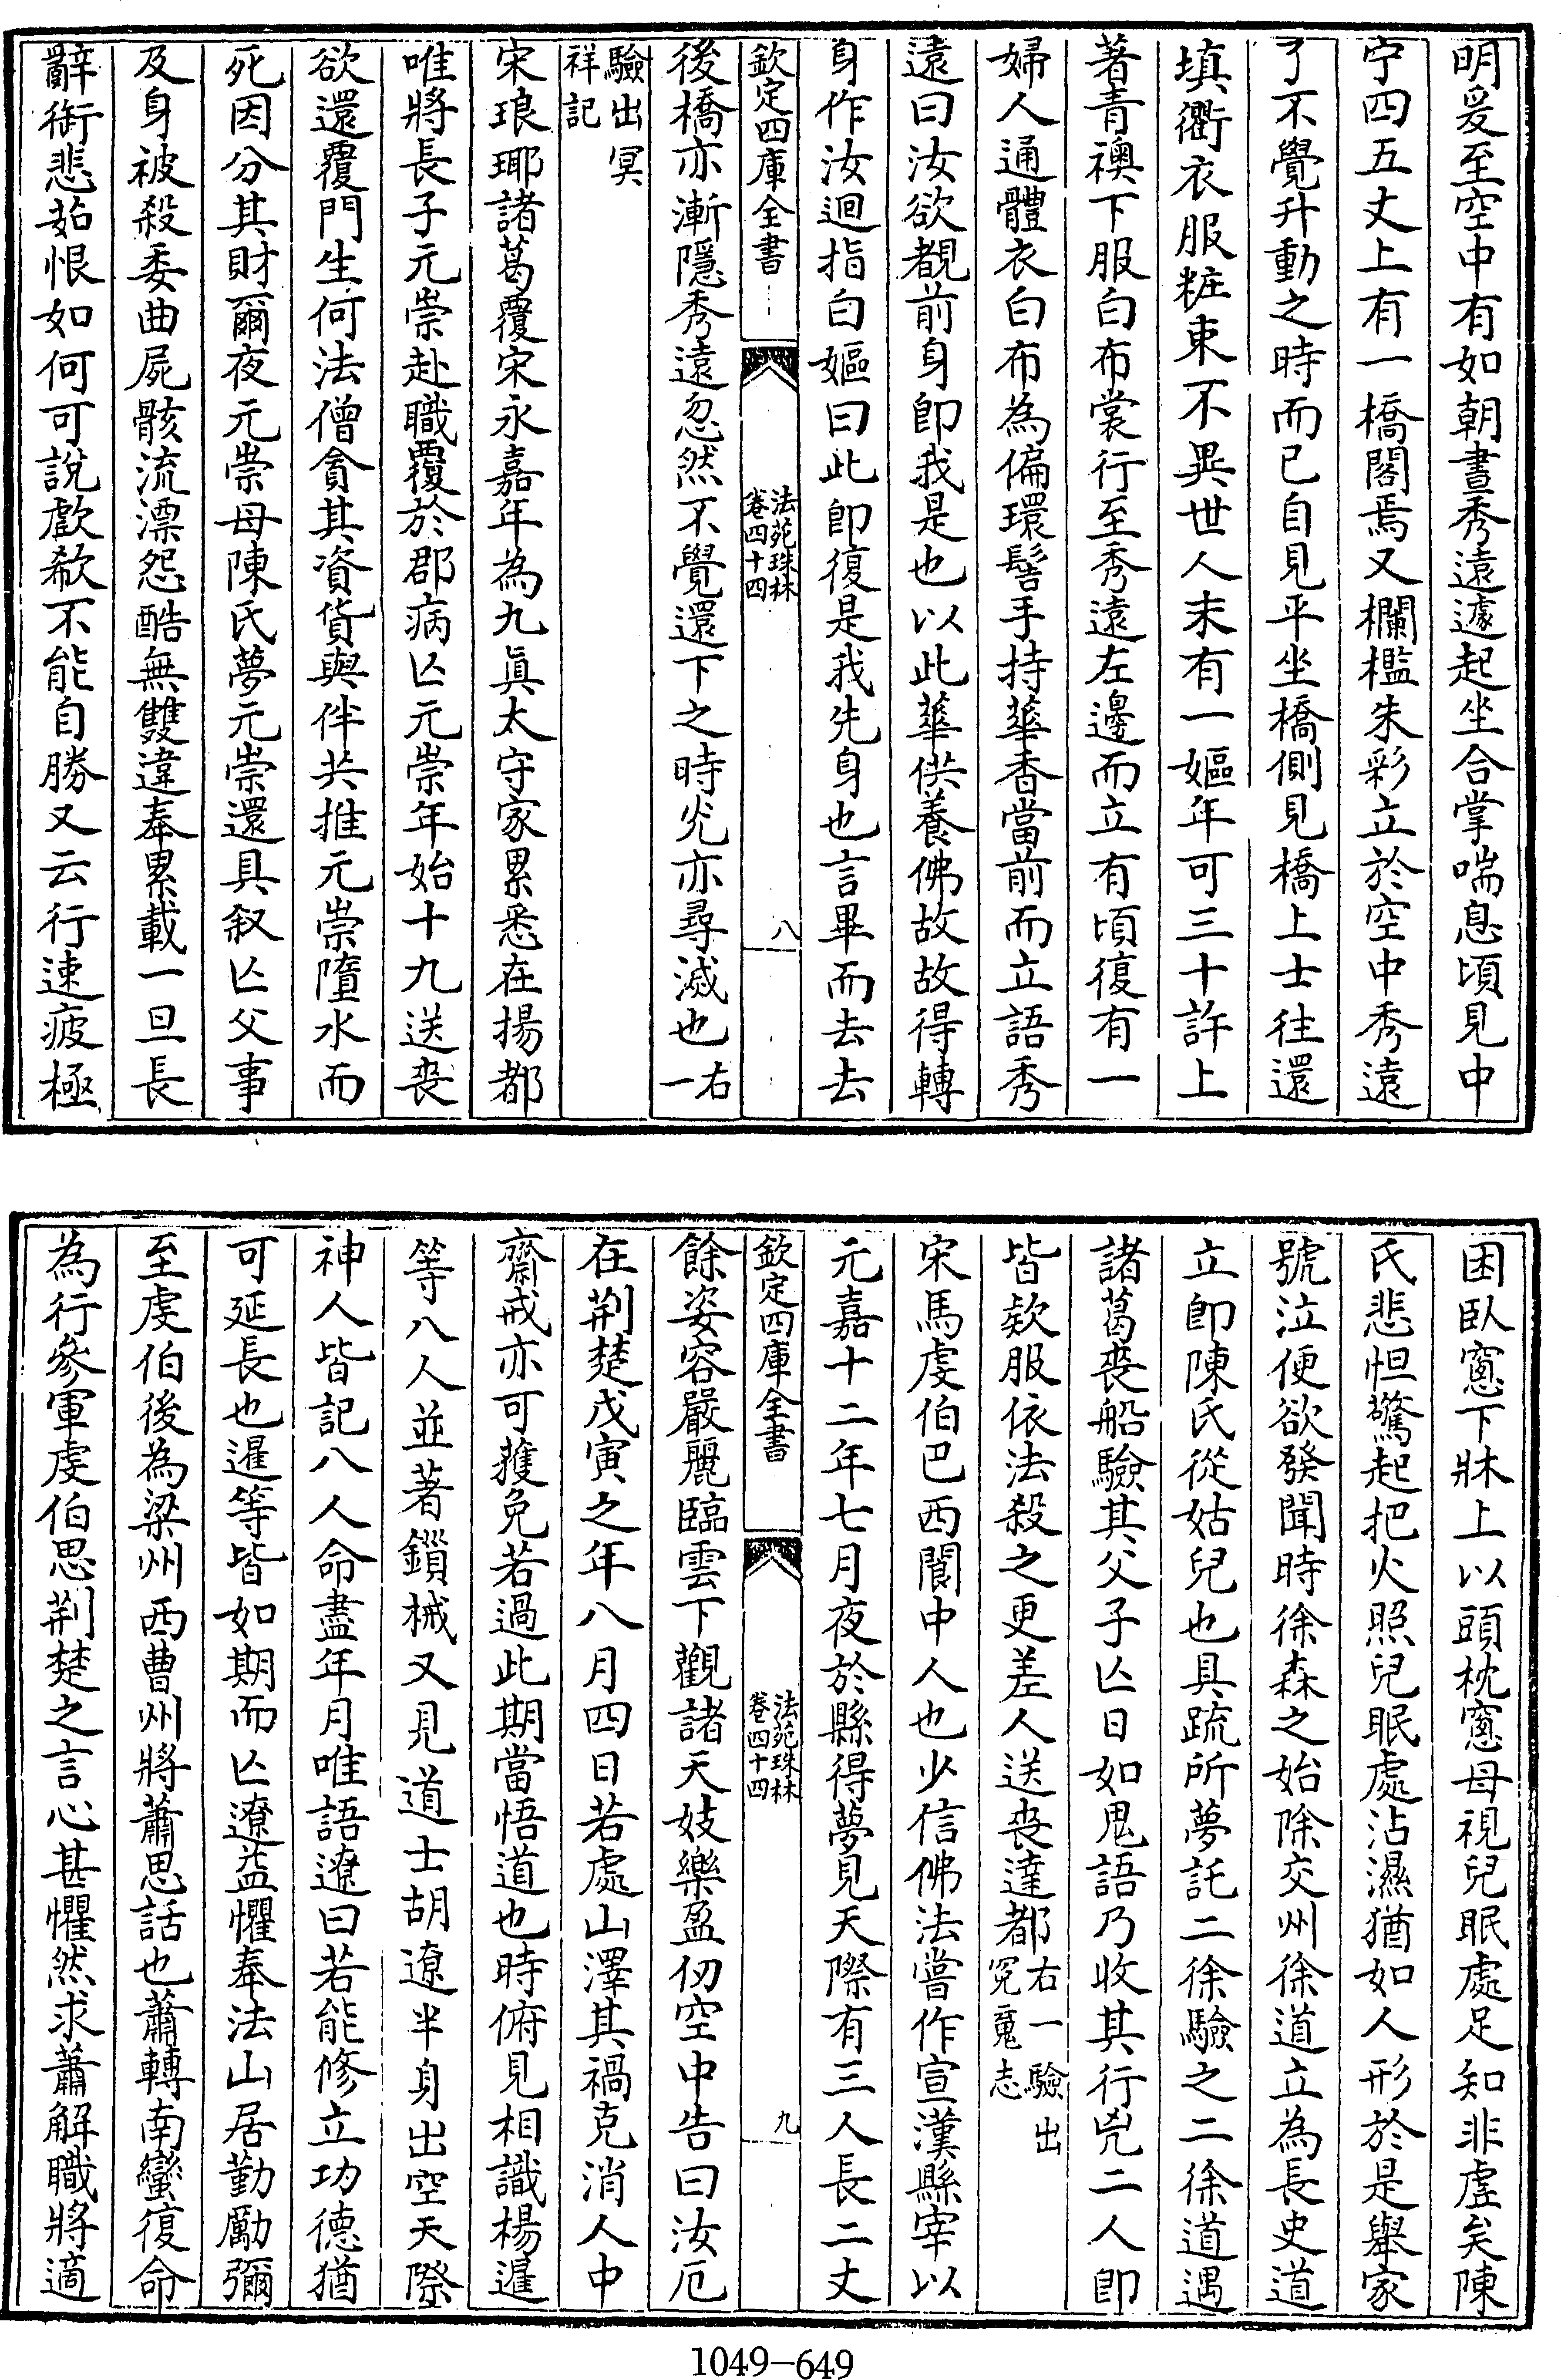 明爰至空中有如朝晝秀遠遽起坐合掌喘息頃見中
宁四五丈上有一橋閣焉又欄檻朱彩立於空中秀遠
了不覺升動之時而已自見平坐橋側見橋上士往還
填衢衣服粧束不異世人末有一嫗年可三十許上
著青襖下服白布裳行至秀遠左邊而立有頃復有一
婦人通體衣白布為偏環髻手持華香當前而立語秀
遠曰汝欲覩前身即我是也以此華供養佛故故得轉
身作汝迴指白嫗曰此即復是我先身也言畢而去去
欽定四庫全書
法苑珠林
卷四十四
八
後橋亦漸隱秀遠忽然不覺還下之時光亦尋滅也右一
驗出冥
祥記
宋琅琊諸葛覆宋永嘉年為九眞太守家累悉在揚都
唯將長子元崇赴職覆於郡病亾元崇年始十九送喪
欲還覆門生何法僧貪其資貨與伴共推元崇墮水而
死因分其財爾夜元崇母陳氏夢元崇還具叙亾父事
及身被殺委曲屍骸流漂怨酷無雙違奉累載一旦長
辭銜悲茹恨如何可說歔欷不能自勝又云行速疲極
困臥窻下牀上以頭枕窻母視兒眠處足知非虛矣陳
氏悲怛驚起把火照兒眠處沾濕猶如人形於是舉家
號泣便欲發聞時徐森之始除交州徐道立為長史道
立即陳氏從姑兒也具疏所夢託二徐驗之二徐道遇
諸葛喪船驗其父子亾日如鬼語乃收其行兇二人即
皆欵服依法殺之更差人送喪達都右一驗出
冤䰟志
宋馬虔伯巴西閬中人也少信佛法嘗作宣漢縣宰以
元嘉十二年七月夜於縣得夢見天際有三人長二丈
欽定四庫全書
法苑珠林
卷四十四
九
餘姿容嚴麗臨雲下觀諸天妓樂盈仞空中告曰汝厄
在荆楚戊寅之年八月四日若處山澤其禍克消人中
齋戒亦可獲免若過此期當悟道也時俯見相識楊暹
等八人並著鎖械又見道士胡遼半身出空天際
神人皆記八人命盡年月唯語遼曰若能修立功德猶
可延長也暹等皆如期而亾遼益懼奉法山居勤勵彌
至虔伯後為梁州西曹州將蕭思話也蕭轉南蠻復命
為行參軍虔伯思荆楚之言心甚懼然求蕭解職將適
1049-649